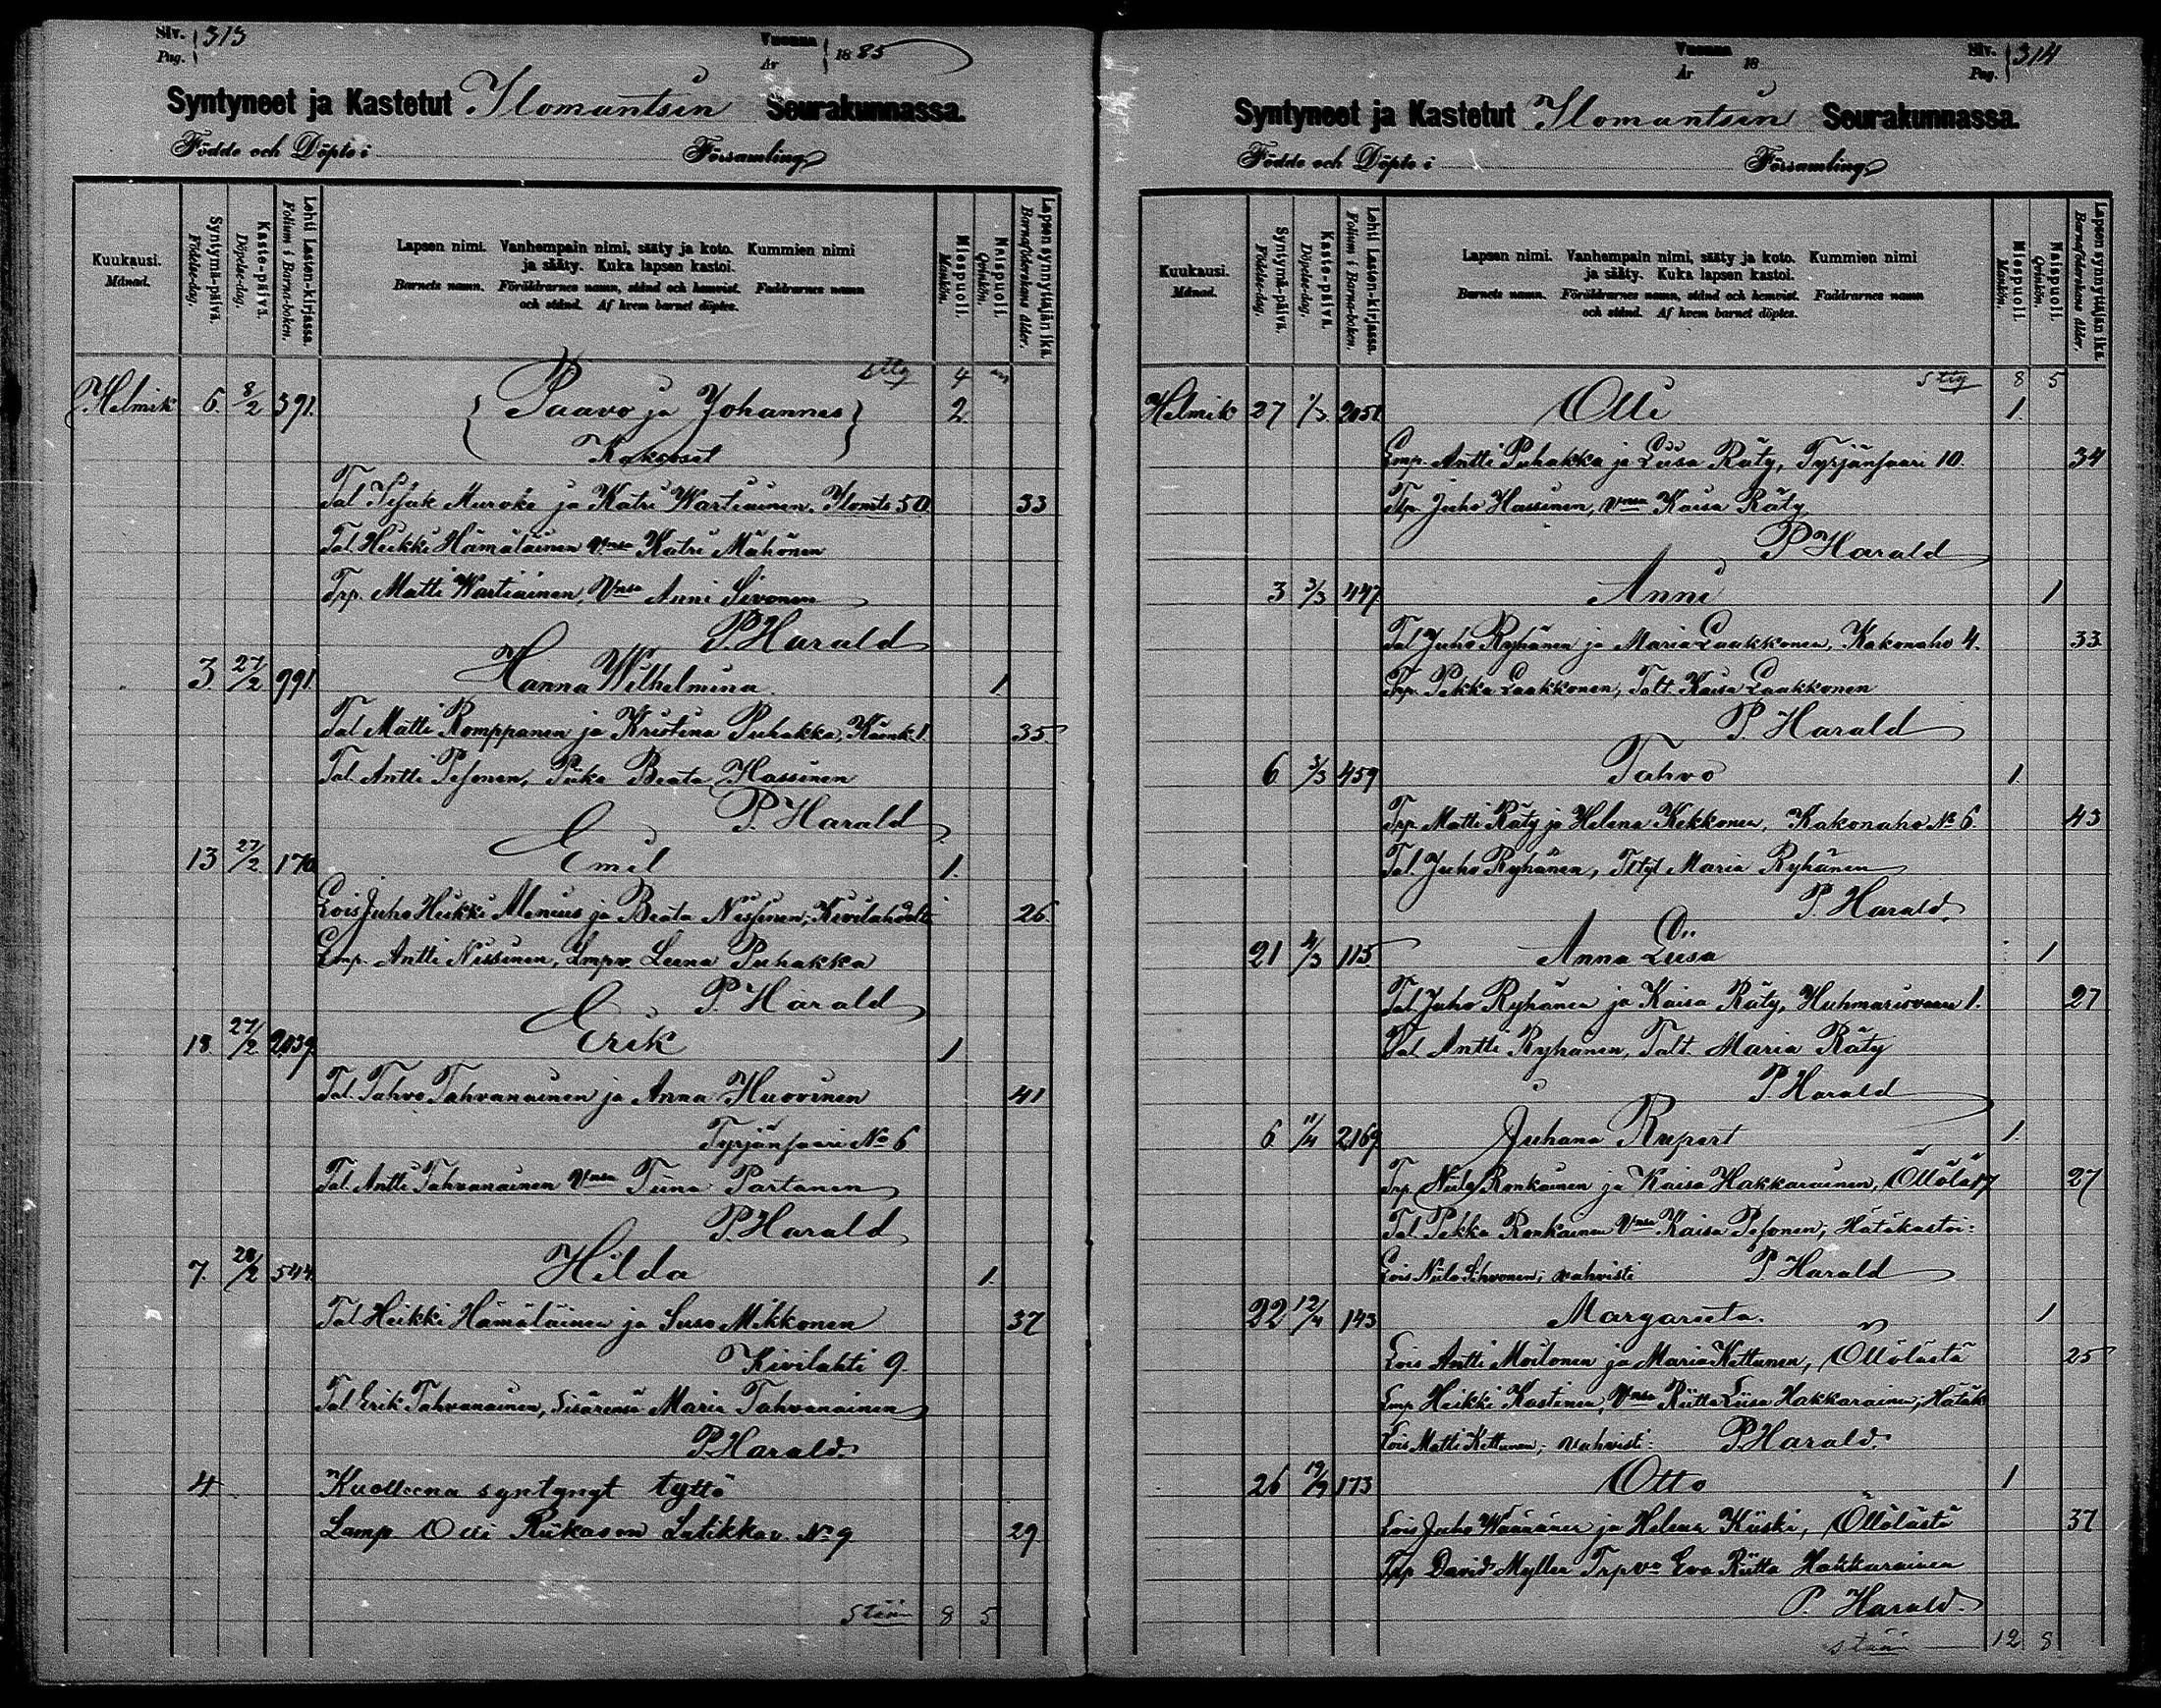 Siv. Pag. 313
Vuonna År 1885
Syntyneet ja Kastetut Ilomantsin Seurakunnassa.
Födde och Döpte i Församling
Kuukausi. Månad.
Syntymä-päivä. Födelse-dag.
Kaste-päivä. Döpelse-dag.
Lehti Lasten-kirjassa. Folium i Barna-boken.
Lapsen nimi. Vanhempain nimi, sääty ja koto. Kummien nimi
ja sääty. Kuka lapsen kastoi.
Barnets namn. Föräldrarnes namn, stånd och hemvist. Faddrarnes namn
och stånd. Af hvem barnet döptes.
Miespuoli. Mankön.
Naispuoli. Qvinkön.
Lapsen synnyttäjän ikä. Barnaföderskans ålder.
4
Helmik 6. 8/2 391. Paavo ja Johannes 2.
Kaksoset
Tal Iisak Muroke ja Katri Wartiainen, Ilomts 50. 33
Tal. Heikki Hämäläinen Vmsa Katri Mähönen
Trp. Matti Wartiainen, Vmsa Anni Sivonen
P. Harald
3. 27/2 991. Hanna Wilhelmina. 1.
Tal Matti Romppanen ja Kristina Puhakka, Kuonk. 1. 35.
Tal. Antti Pesonen, Piika Beata Hassinen
P. Harald
13 27/2 170 Emil 1.
Lois Juho Heikki Alenius ja Beata Nissinen; Kivilahdelta 26.
Lmp. Antti Nissinen, Lmpv. Leena Puhakka
P. Harald
18 27/2 2039. Erik 1
Tal. Tahvo Tahvanainen ja Anna Huovinen 41
Tyrjänsaari No 6
Tal. Antti Tahvanainen Vmsa Tiina Partanen
P. Harald
7. 28/2 544. Hilda 1.
Tal Heikki Hämäläinen ja Susa Mikkonen 37
Kivilahti 9.
Tal Erik Tahvanainen, Sisärensä Maria Tahvanainen
P. Harald.
4 Kuolleena syntynyt tyttö
Lamp. Olli Riikasen Lutikkav. No 9 29.
8 5
Vuonna År 18
Siv. Pag. 314
Syntyneet ja Kastetut Ilomantsin Seurakunnassa.
Födde och Döpte i Församling
Kuukausi. Månad.
Syntymä-päivä. Födelse-dag.
Kaste-päivä. Döpelse-dag.
Lehti Lasten-kirjassa. Folium i Barna-boken.
Lapsen nimi. Vanhempain nimi, sääty ja koto. Kummien nimi
ja sääty. Kuka lapsen kastoi.
Barnets namn. Föräldrarnes namn, stånd och hemvist. Faddrarnes namn
och stånd. Af hvem barnet döptes.
Miespuoli. Mankön.
Naispuoli. Qvinkön.
Lapsen synnyttäjän ikä. Barnaföderskans ålder.
8 5
Helmik 27 1/3. 2051. Olli 1.
Lmp. Antti Puhakka ja Liisa Räty, Tyrjänsaari 10. 34
Trp. Juho Hassinen, Vmsa Kaisa Räty
P Harald
3 3/3 447. Anni 1
Tal Juho Ryhänen ja Maria Laakkonen, Kakonaho 4. 33.
Trp. Pekka Laakkonen, Talt. Kaisa Laakkonen
P. Harald
6 3/3 459 Tahvo 1.
Trp. Matti Räty ja Helena Kekkonen, Kakonaho No 6. 43
Tal. Juho Ryhänen, Tltyt Maria Ryhänen
P. Harald.
21 4/3 115. Anna Liisa 1
Tal Juho Ryhänen ja Kaisa Räty, Huhmarisvaara 1. 27
Tal. Antti Ryhänen, Talt. Maria Räty
P. Harald
6. 11/4 2169. Juhana Rupert 1.
Trp. Niilo Ronkainen ja Kaisa Hakkarainen, Öllölä 17 27
Tal Pekka Ronkainen Vmsa Kaisa Pesonen; Hätäkastoi:
Lois Niilo Sihvonen; vahvisti P. Harald
22 12/4 143 Margareeta. 1
Lois Antti Moilonen ja Maria Kettunen, Öllölästä 25
Lmp Heikki Kostinen, Vmsa Riitta Liisa Hakkarainen; Hätäk
Lois Matti Kettunen; vahvisti: P. Harald.
26 19/4 173 Otto 1
Lois Juho Wäänänen ja Helena Kiiski, Öllölästä 37
Trp David Myller Trpvo Eva Riitta Hakkarainen
P. Harald.
12 8